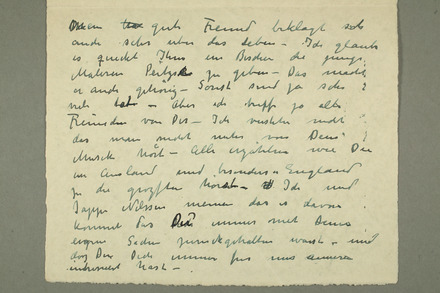 gute Freund beklagt sich
auch sehr über das Leben – Ich glaube
es Ihm ein Bischen die junge
Malerin zu geben – Das macht
er auch gehörig – Sonst sind ja sehr
viele – Aber ich treffe ja alle
Freunden von Dir – Ich verstehe nicht
das man nicht mehr von Deine
Musik hört – Alle erzählen wie Du
im Ausland und besonders in England
zu die grøssten – Ich und
Jappe Nilssen meinen das es davon
kommt das Du immer mit Deine
eigne Sachen zurückgehalten warst – und
das Du Dich immer für uns anderen
interessirt hast –